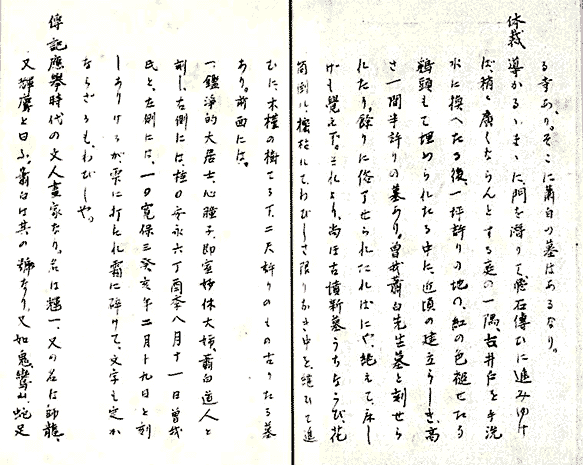 る寺あり。そこに蕭白の墓はあるなり。
体裁 導かるゝまゝに、門を潜りて磴石傳ひに進みゆけ
ば稍々廣くならんとする庭の一隅、古井戸を手洗
水に換へたる後、一坪許りの地の、紅の色褪せたる
鶏頭もて埋められたる中に、近頃の建立らしき、高
さ一間半許りの墓あり。曽我蕭白先生墓と刻せら
れたり。餘りに俗了せられたればにや、絶えて床し
げも覚えず。これより、尚ほ古墳新墓うちならび、花
筒倒れ、枯れてわびしさ限りなき中を、縫ひて進
むに、木槿の樹てる下、二尺許りのもの古りたる墓
あり。前面には。
一、鑑浄的大居士、心瞳子、即室妙休大姉、蕭白道人と
刻し、右側には、恒日安永六丁酉季八月十一日曽我
氏と、左側には、一日寛保三癸亥年二月十九日と刻
しありけるが、雫に打たれ霜に砕けて、文字も定か
ならざるも、わびしや。
傳記 應挙時代の文人畫家なり。名は輝一、又の名は師龍、
又輝鷹と曰ふ。蕭白は其の號なり、又如鬼、鸞山、蛇足